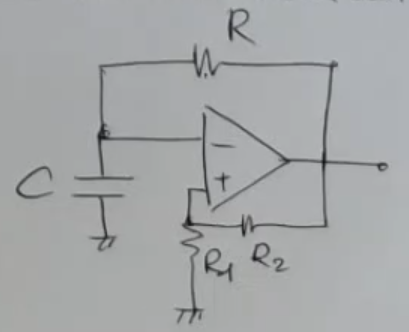 R
−
C
+
R1
R2